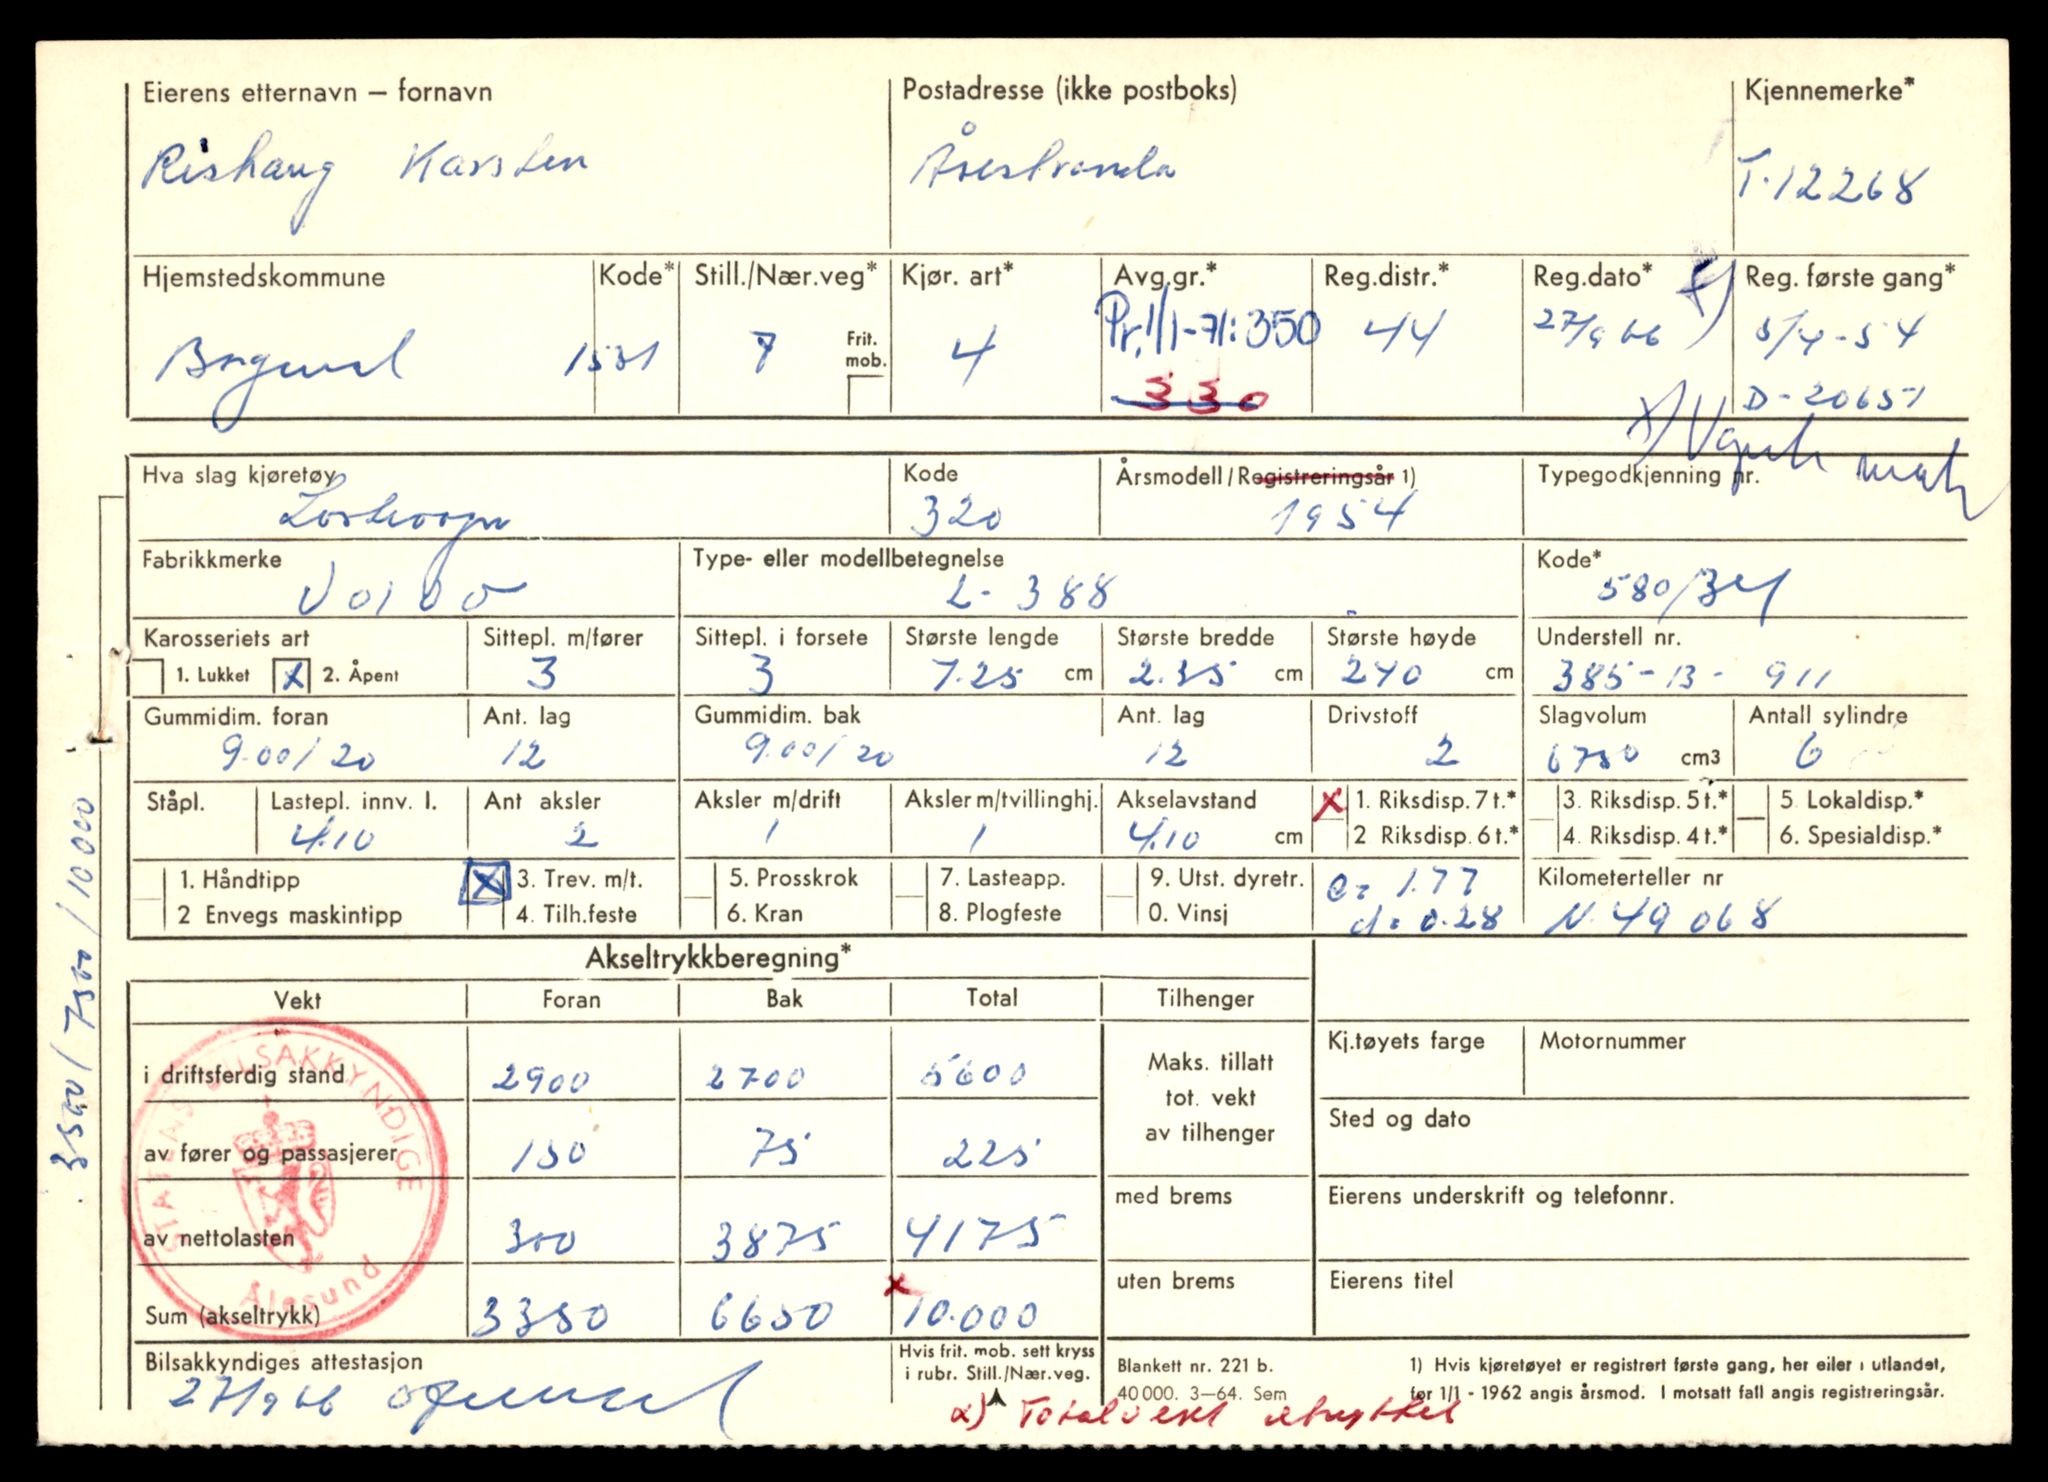 Eierens etternavn – fornavn Postadresse (ikke postboks) Kjennemerke*
Rishaug Karsten Årestranda T-12268
Hjemstedskommune Kode* Still./Nær.veg* Kjør. art* Avg.gr.* Reg.distr.* Reg.dato* x) Reg. første gang*
Borgund 1531 7 Frit. mob. 4 Pr. 1/1-71: 350 44 27/9 66 5/4-54
330 D-20651
x)
Hva slag kjøretøy Kode Årsmodell/Registreringsår 1) Typegodkjenning nr.
Lastevogn 320 1954
Fabrikkmerke Type- eller modellbetegnelse Kode*
Volvo L-388 580/34
Karosseriets art Sittepl. m/fører Sittepl. i forsete Største lengde Største bredde Største høyde Understell nr.
1. Lukket x 2. Åpent 3 3 7.25 cm 2.35 cm 240 cm 385-13-911
Gummidim. foran Ant. lag Gummidim. bak Ant. lag Drivstoff Slagvolum Antall sylindre
9.00/20 12 9.00/20 12 2 6750 cm3 6
Ståpl. Lastepl. innv. l. Ant aksler Aksler m/drift Aksler m/tvillinghj. Akselavstand x 1. Riksdisp. 7 t.* 3. Riksdisp. 5 t.* 5 Lokaldisp.*
4.10 2 1 1 4.10 cm 2 Riksdisp. 6 t.* 4. Riksdisp. 4 t.* 6. Spesialdisp.*
1. Håndtipp x 3. Trev. m/t. 5. Prosskrok 7. Lasteapp. 9. Utst. dyretr. e= 1.77 Kilometerteller nr
2 Envegs maskintipp 4. Tilh.feste 6. Kran 8. Plogfeste 0. Vinsj d= 0.28 N. 49068
3500/7500/10000
Akseltrykkberegning*
Vekt Foran Bak Total Tilhenger
i driftsferdig stand 2900 2700 5600 Maks. tillatt tot. vekt av tilhenger Kj.tøyets farge Motornummer
av fører og passasjerer 150 75 225 Sted og dato
av nettolasten 300 3875 4175 med brems Eierens underskrift og telefonnr.
Sum (akseltrykk) 3350 6650 x 10.000 uten brems Eierens titel
STATENS BILSAKKYNDIGE
Ålesund
Bilsakkyndiges attestasjon Hvis frit. mob. sett kryss i rubr. Still./Nær.veg. Blankett nr. 221 b. 1) Hvis kjøretøyet er registrert første gang, her eller i utlandet,
27/9 66 40 000. 3–64. Sem før 1/1 - 1962 angis årsmod. I motsatt fall angis registreringsår.
x) Totalvekt